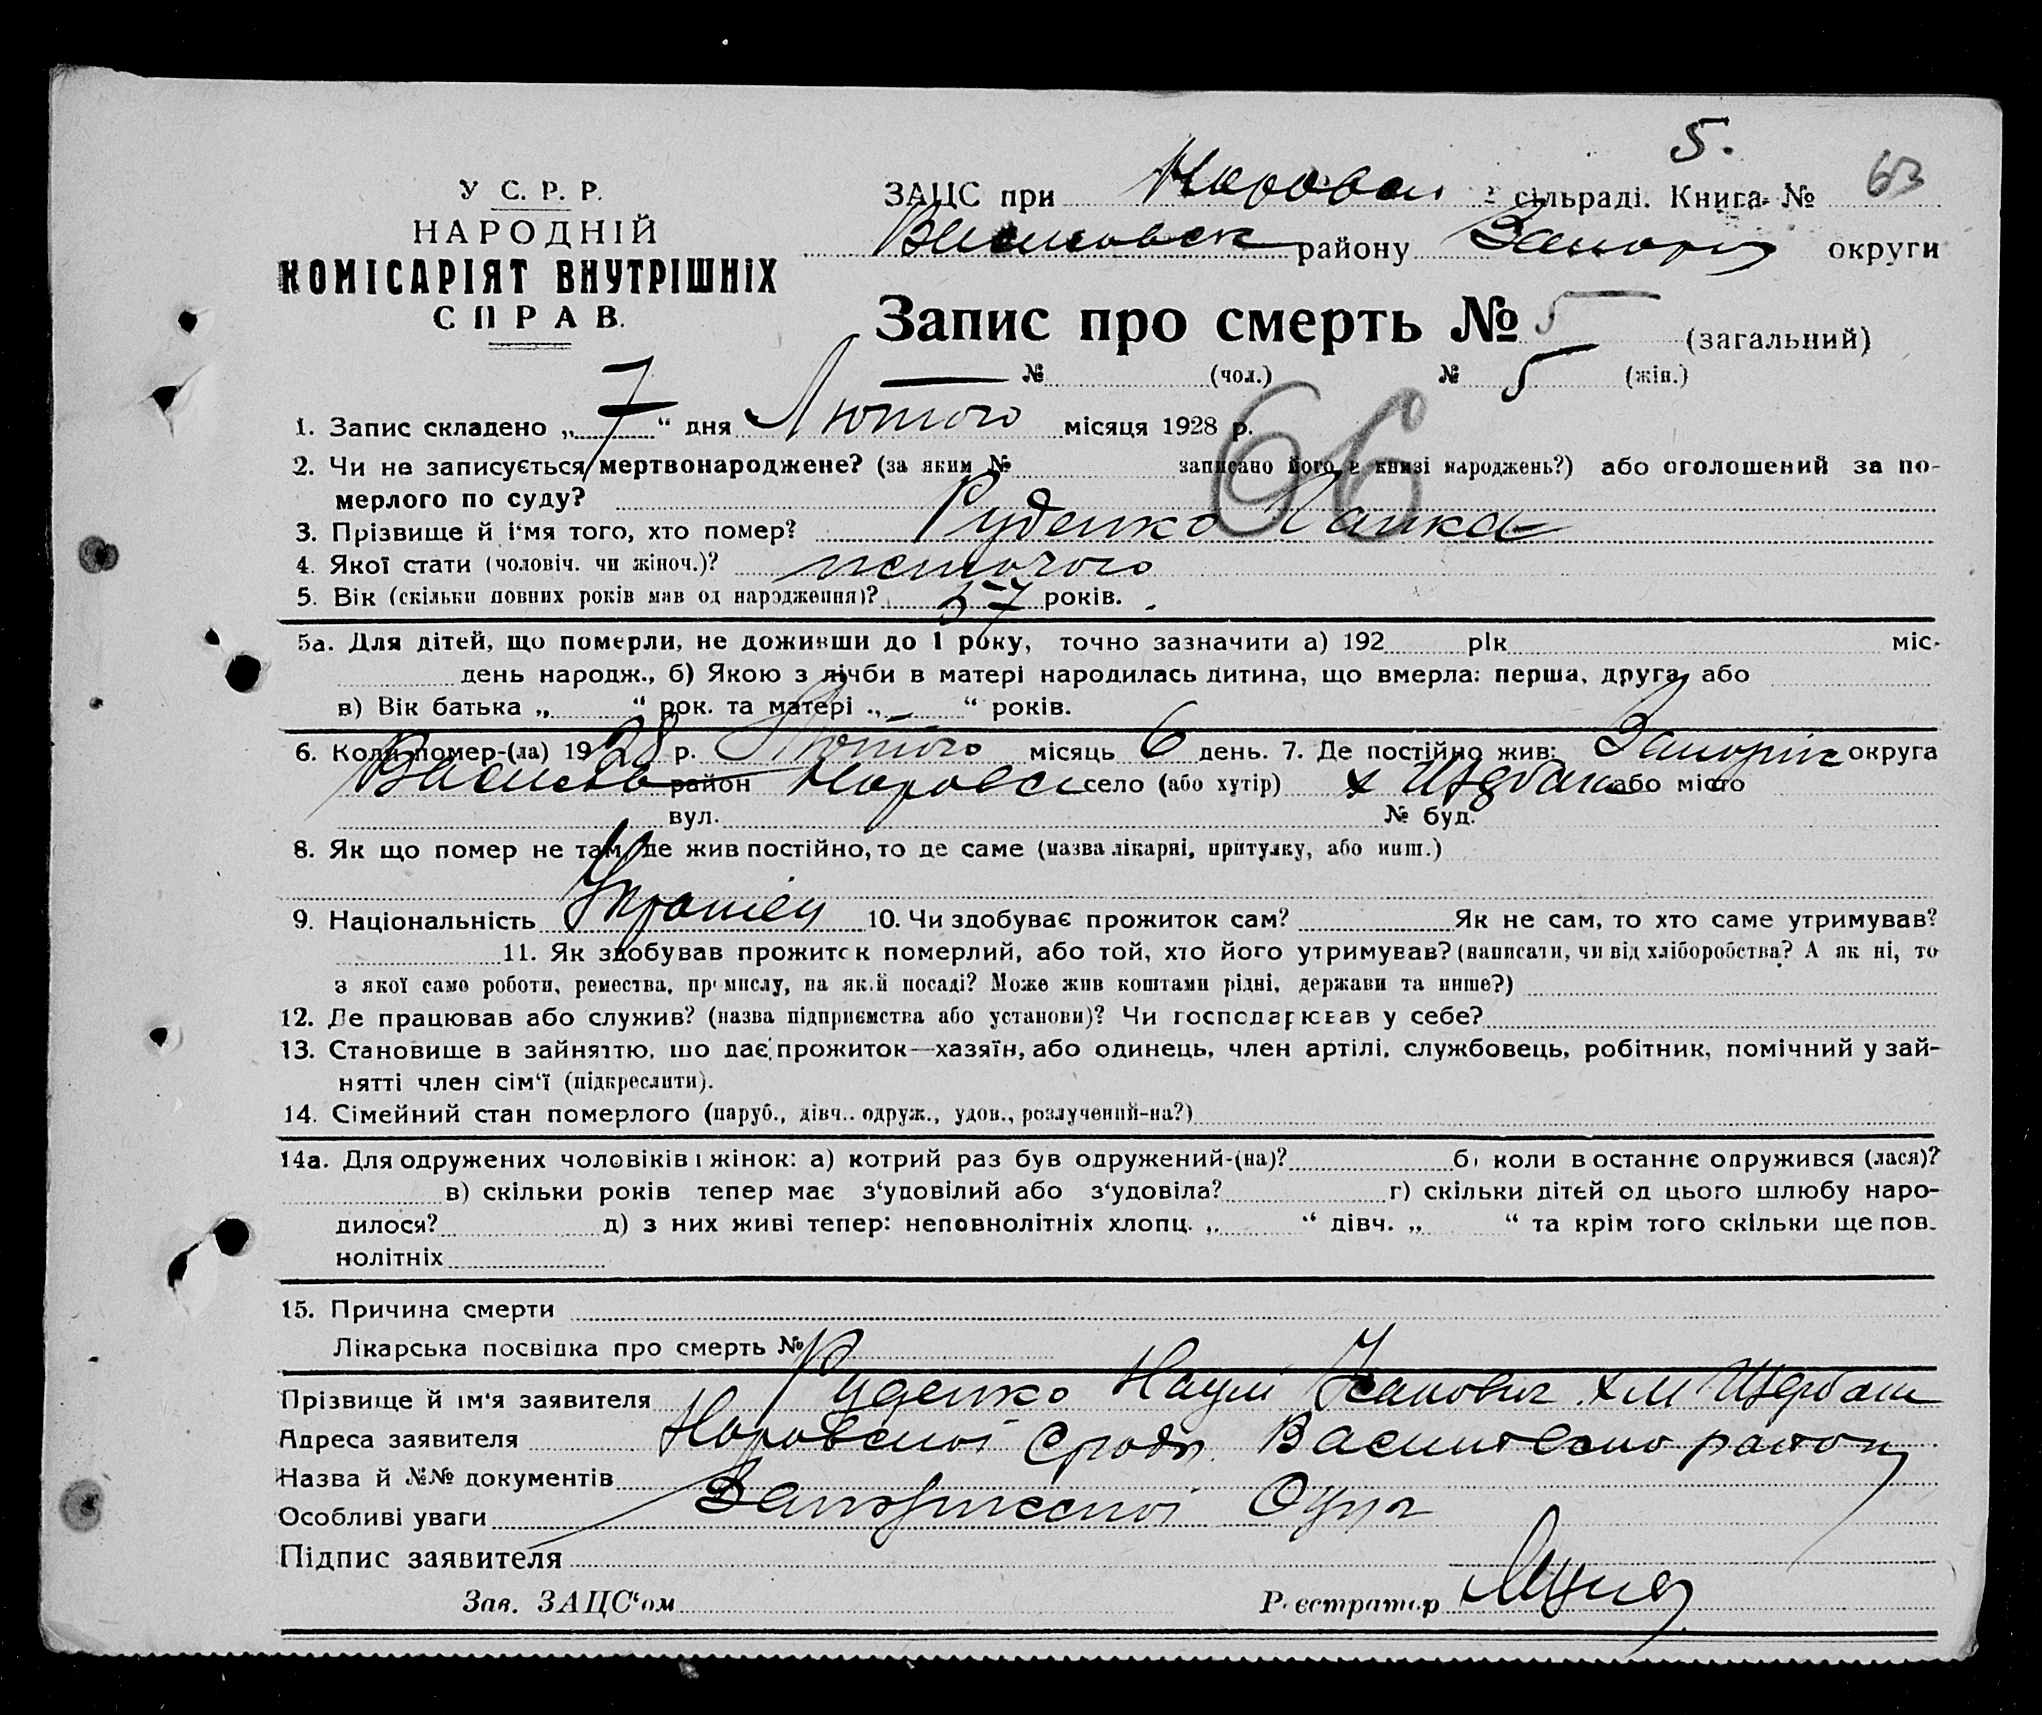 5.
У С. Р. Р.
НАРОДНІЙ
КОМІСАРІЯТ ВНУТРІШНІХ
СПРАВ.
ЗАЦС при сільраді. Книга № 63
району округи
Запис про смерть № 5 (загальний)
— № (чол.) № 5 (жін.)
66
1. Запис складено „ 7 “ дня Лютого місяця 1928 р.
2. Чи не записується мертвонароджене? (за яким № записано його в книзі народжень?) або оголошений за по-
мерлого по суду?
3. Прізвище й і'мя того, хто помер? Руденко
4. Якої стати (чоловіч. чи жіноч.)?
5. Вік (скільки повних років мав од народження)? 57 років.
5а. Для дітей, що померли, не доживши до 1 року, точно зазначити а) 192 рік міс.
день народж., б) Якою з лічби в матері народилась дитина, що вмерла: перша, друга, або
в) Вік батька „ “ рок. та матері „ “ років.
6. Коли помер-(ла) 1928 р. Лютого місяць 6 день. 7. Де постійно жив: Запоріж округа
район село (або хутір) х або місто
вул. № буд.
8. Як що помер не там, де жив постійно, то де саме (назва лікарні, притулку, або инш.)
9. Національність 10. Чи здобуває прожиток сам? Як не сам, то хто саме утримував?
11. Як здобував прожиток померлий, або той, хто його утримував? (написати, чи від хліборобства? А як ні, то
з якої само роботи, ремества, промислу, на якій посаді? Може жив коштами рідні, держави та инше?)
12. Де працював або служив? (назва підприємства або установи)? Чи господарював у себе?
13. Становище в зайняттю, що дає прожиток—хазяїн, або одинець, член артілі, службовець, робітник, помічний у зай-
нятті член сім'ї (підкреслити).
14. Сімейний стан померлого (паруб., дівч.. одруж., удов., розлучений-на?)
14а. Для одружених чоловіків і жінок: а) котрий раз був одружений-(на)? б) коли в останнє одружився (лася)?
в) скільки років тепер має з'удовілий або з'удовіла? г) скільки дітей од цього шлюбу наро-
дилося? д) з них живі тепер: неповнолітніх хлопц. „ “ дівч. „ “ та крім того скільки ще пов-
нолітніх
15. Причина смерти
Лікарська посвідка про смерть №
Прізвище й ім'я заявителя Руденко Наум Іванович
Адреса заявителя
Назва й №№ документів
Особливі уваги
Підпис заявителя
Зав. ЗАЦС'ом Реєстратор